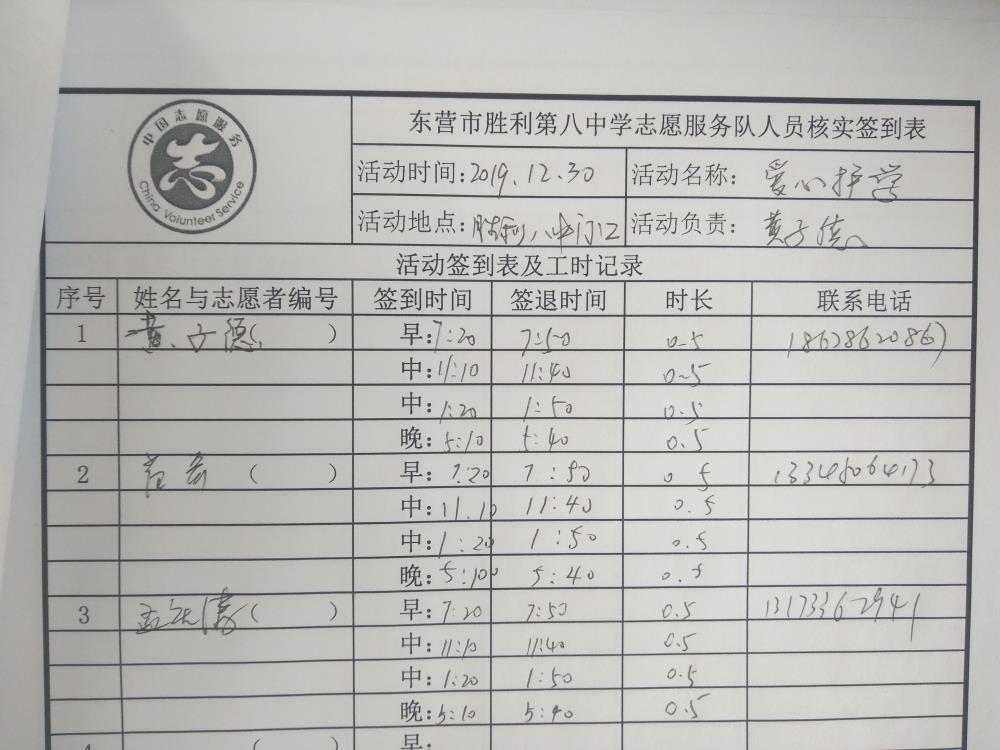 中国志愿服务
志
China Volunteer Service
东营市胜利第八中学志愿服务队人员核实签到表
活动时间:2019.12.30 活动名称: 爱心护学
活动地点:胜利八中门口 活动负责: 黄子德
活动签到表及工时记录
序号 姓名与志愿者编号 签到时间 签退时间 时长 联系电话
1 黄子德( ) 早:7:20 7:50 0.5 18628620867
中:11:10 11:40 0.5
中:1:20 1:50 0.5
晚:5:10 5:40 0.5
2 ( ) 早:7:20 7:50 0.5 13348064173
中:11.10 11:40 0.5
中:1:20 1:50 0.5
晚:5:10 5:40 0.5
3 ( ) 早:7:20 7:50 0.5 13173362941
中:11:10 11:40 0.5
中:1:20 1:50 0.5
晚:5:10 5:40 0.5
4 ( ) 早: